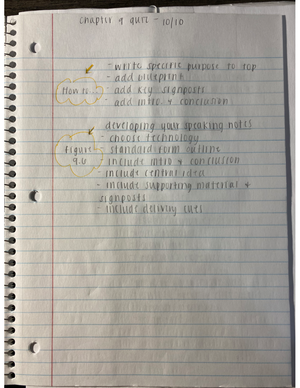 Chapter 9 quiz - 10/10
- write specific purpose to top
- add blueprint
How to - add key signposts
- add intro & conclusion
developing your speaking notes
- choose technology
Figure 9.6 - standard form outline
- include intro & conclusion
- include central idea
- include supporting material &
signposts
- include delivery cues